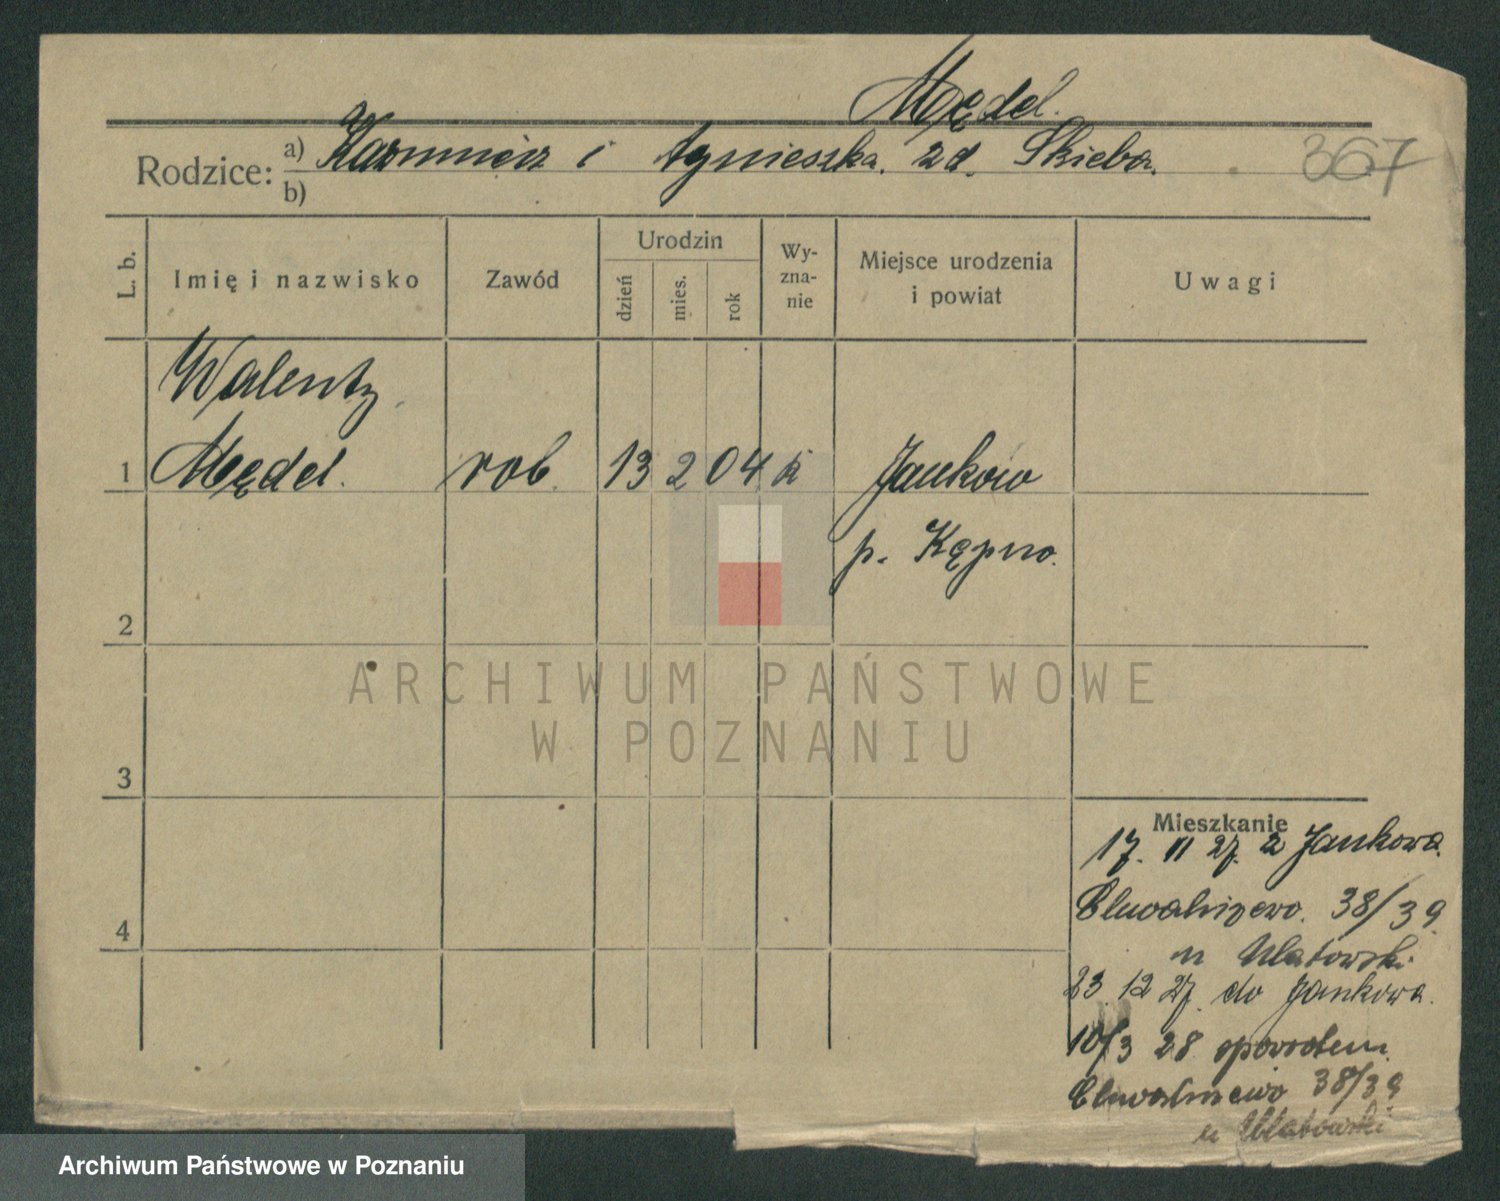 Mędel.
Rodzice: a) Kazimierz i Agnieszka. zd. Skieba.
b)
367
L. b.
Imię i nazwisko
Zawód
Urodzin
dzień
mies.
rok
Wy-
zna-
nie
Miejsce urodzenia
i powiat
Uwagi
Walenty
1 Mędel. rob. 13 2 04 k Janków
p. Kępno.
2
3
4
ARCHIWUM PAŃSTWOWE
W POZNANIU
Mieszkanie
17. 11 27. z Jankowa.
38/39
u
23 12 27. do Jankowa.
10/3 28 spowrotem.
38/39
u
Archiwum Państwowe w Poznaniu